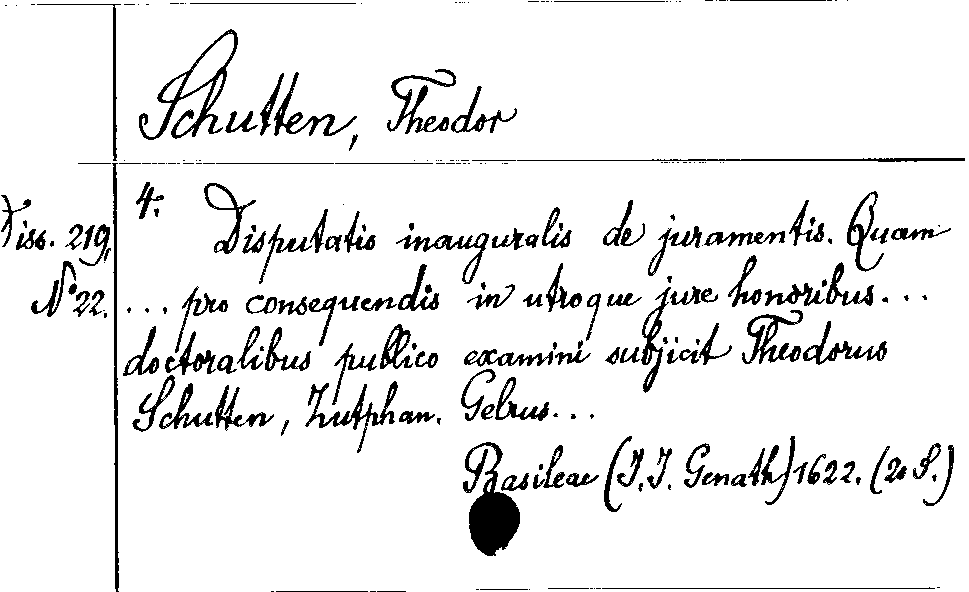 Schutten, Theodor
Diss. 219,
N° 22.
4. Disputatio inauguralis de juramentis. Quam
... pro consequendis in utroque jure honoribus...
doctoralibus publico examini subjicit Theodorus
Schutten, Zutphan. Gelrus...
Basileae (J. J. Genath) 1622. (20 S.)